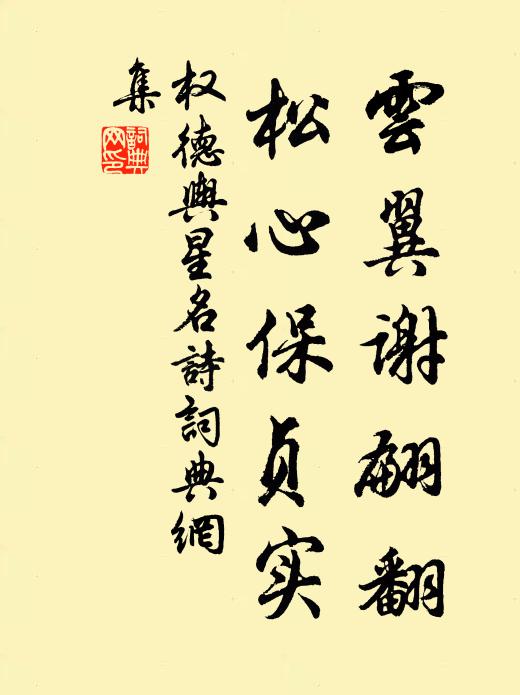 雲翼谢翩翻
松心保贞实
权德輿星名詩詞典網
集
詞典
网印